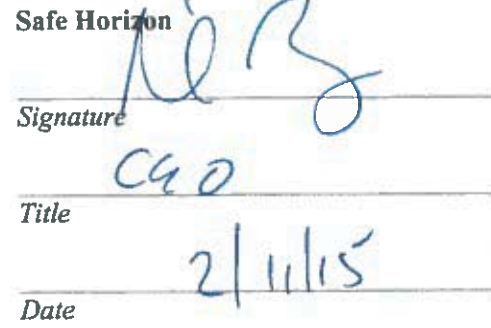 Safe Horizon
Signature
Title
2/11/15
Date